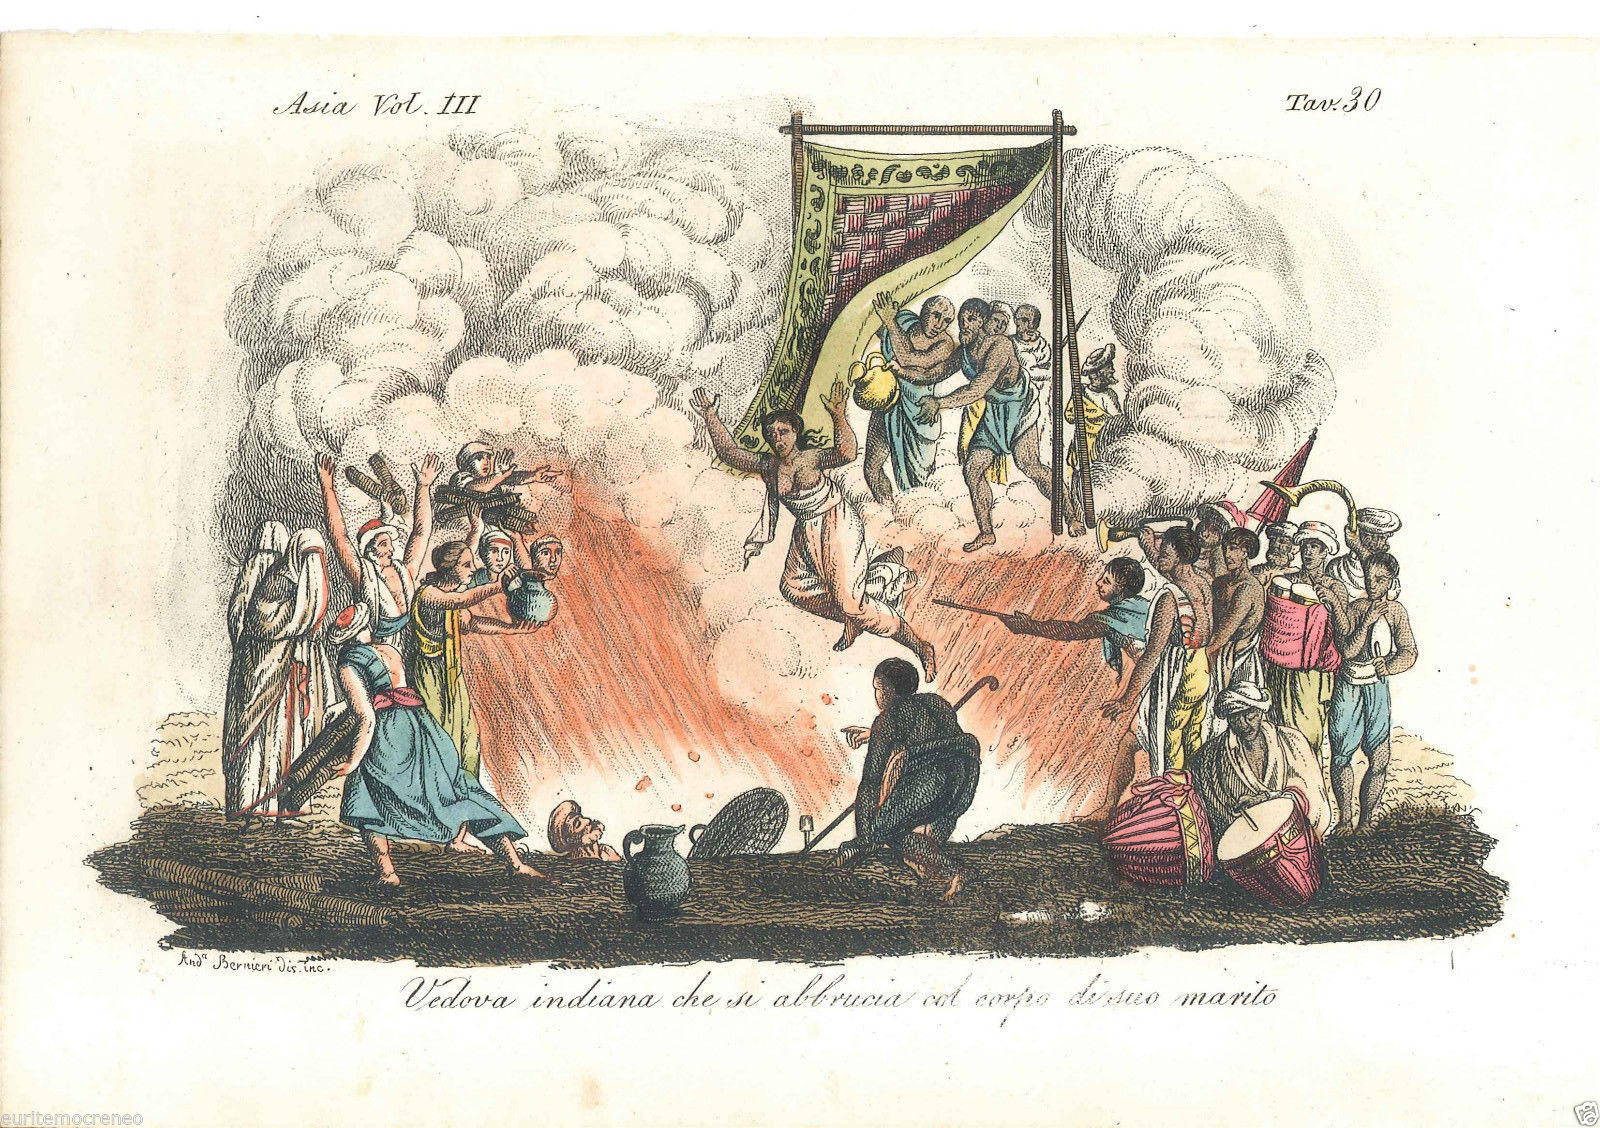 Asia Vol. III
Tav. 30
And.ª Bernieri dis. inc.
Vedova indiana che si abbrucia col corpo di suo marito
euritemocreneo